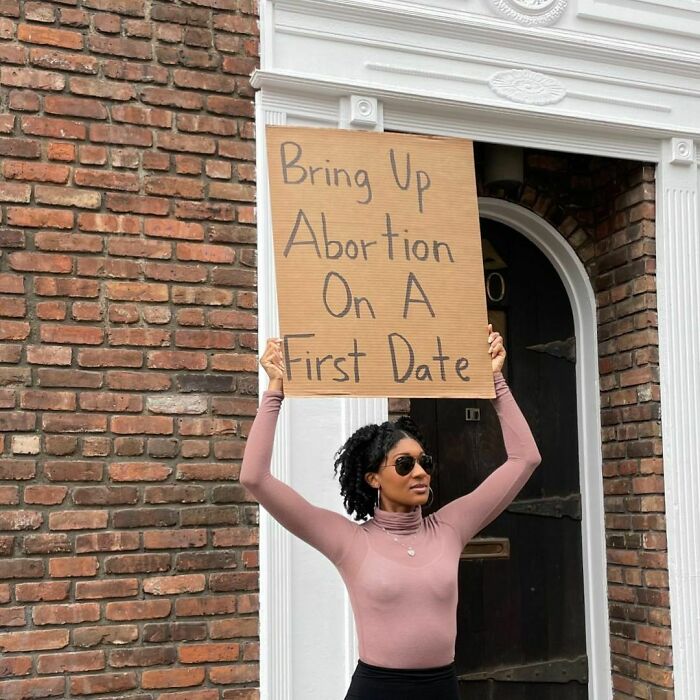 Bring Up
Abortion
On A
First Date